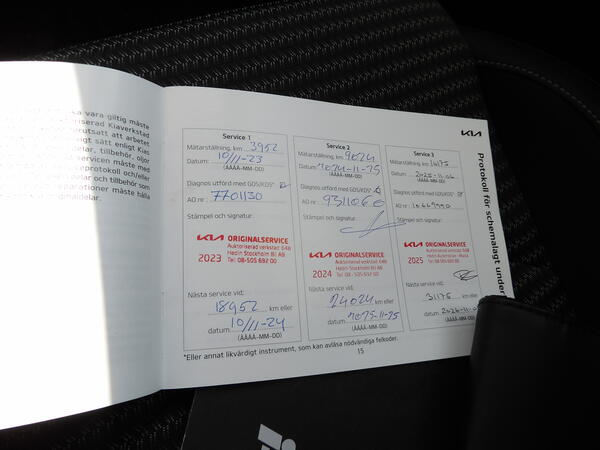 vara giltig måste
iserad Kiaverkstad
rutsatt att arbetet
gt sätt enligt Kias
delar, tillbehör, oljor
servicen måste med
eprotokoll och/eller
r och tillbehör som
parationer måste hålla
naldelar.
KIA
Protokoll för schemalagt under
Service 1
Mätarställning, km 3952
Datum: 10/11-23
(ÅÅÅÅ-MM-DD)
Diagnos utförd med GDS/KDS*
AO nr: 7701130
Stämpel och signatur:
KIA ORIGINALSERVICE
Auktoriserad verkstad 648
2023 Hedin Stockholm Bil AB
Tel: 08-505 692 00
Nästa service vid:
18952 km eller
datum 10/11-24
(ÅÅÅÅ-MM-DD)
Service 2
Mätarställning, km 9024
Datum:
(ÅÅÅÅ-MM-DD)
Diagnos utförd med GDS/KDS*
AO nr: 931106 0
Stämpel och signatur:
KIA ORIGINALSERVICE
Auktoriserad verkstad 648
2024 Hedin Stockholm Bil AB
Tel: 08 - 505 692 00
Nästa service vid:
24024 km eller
datum 2025-11-25
(ÅÅÅÅ-MM-DD)
Service 3
Mätarställning, km 16175
Datum: 2025-11-06
(ÅÅÅÅ-MM-DD)
Diagnos utförd med GDS/KDS*
AO nr:
Stämpel och signatur:
KIA ORIGINALSERVICE
Auktoriserad verkstad 648
2025
Nästa service vid:
31175 km eller
datum
(ÅÅÅÅ-MM-DD)
*Eller annat likvärdigt instrument, som kan avläsa nödvändiga felkoder.
15